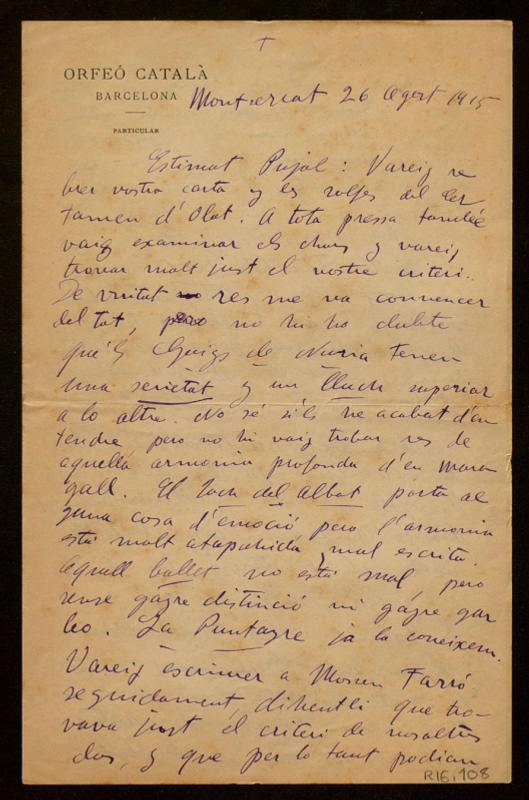 +
ORFEÓ CATALÀ
BARCELONA
PARTICULAR
Montserrat 26 Agost 1915
Estimat Pujol: Vareig re
brer vostra carta y les solfes del Cer
tamen d'Olot. A tota pressa també
vaig examinar els chors y vareig
trovar molt just el vostre criteri.
De veritat res me va convencer
del tot, pero no hi ha dubte
qu'els Goigs de Nuria tenen
una serietat y un lluch superior
a lo altre. No sé si'ls he acabat d'en
tendre pero no hi vaig trobar res de
aquella armonia profonda d'en Mara
gall. El Toch del Albat porta al
guna cosa d'emoció pero l'armonia
está molt atapahida y mal escrita.
Aquell ballet no está mal, pero
sense gayre distinció ni gayre gar
bo. La Puntayre ja la coneixem.
Vareig escriurer a Mossen Farró
seguidament, dihentli que tro-
vava just el criteri de nosaltres
dos, y que per lo tant podian
R16,108